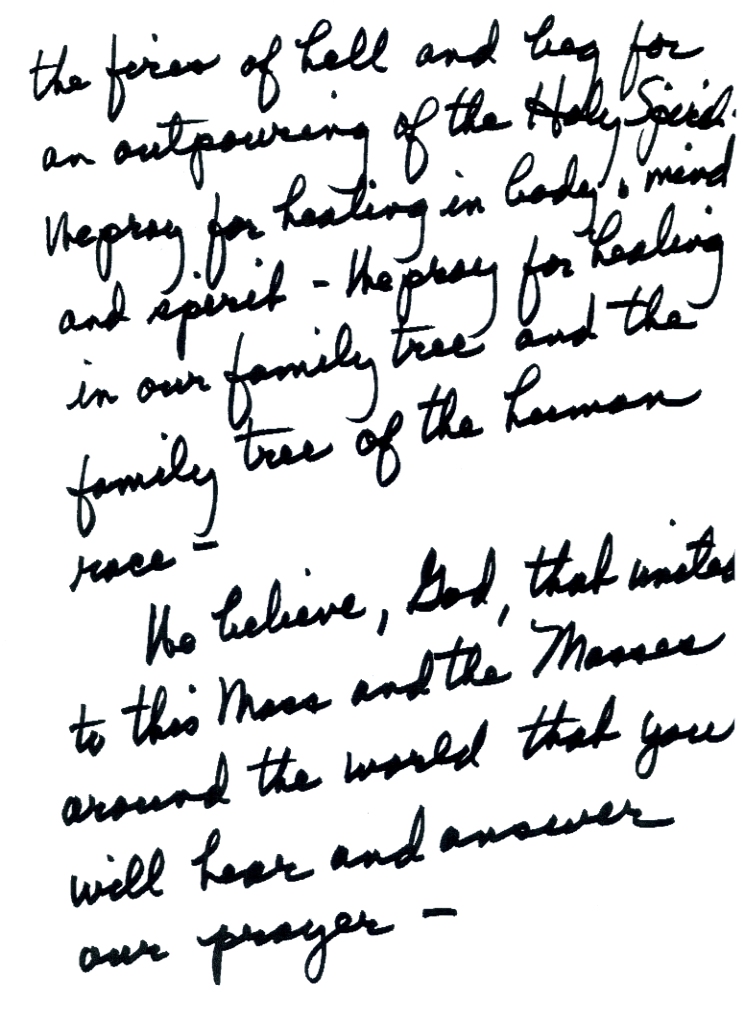 the fires of hell and beg for
an outpouring of the Holy Spirit.
We pray for healing in body, mind
and spirit - We pray for healing
in our family tree and the
family tree of the human
race -
We believe, God, that united
to this Mass and the Masses
around the world that you
will hear and answer
our prayer -